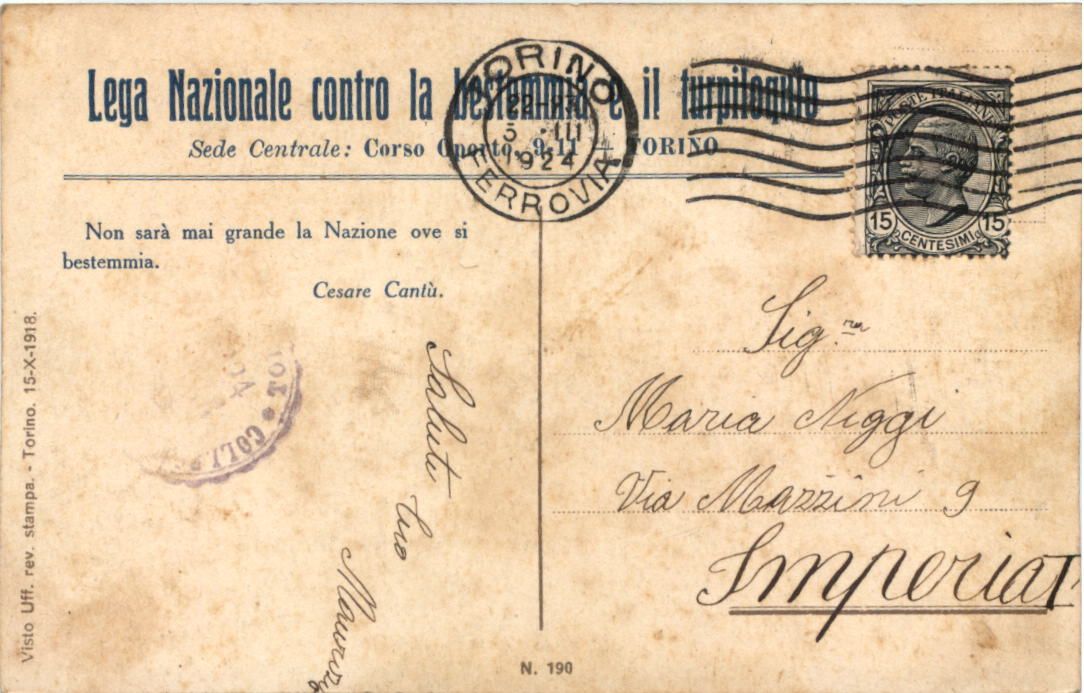 Lega Nazionale contro la bestemmia e il turpiloquio
Sede Centrale: Corso Oporto, 9-11 — TORINO
TORINO
22-23
3 · III
1924
FERROVIA
POSTE ITALIANE
15 15
CENTESIMI
Non sarà mai grande la Nazione ove si
bestemmia.
Cesare Cantù.
Visto Uff. rev. stampa. - Torino. 15-X-1918.
Saluti
tuo
Sig.ra
Maria Niggi
Via Mazzini 9
Imperia I
N. 190